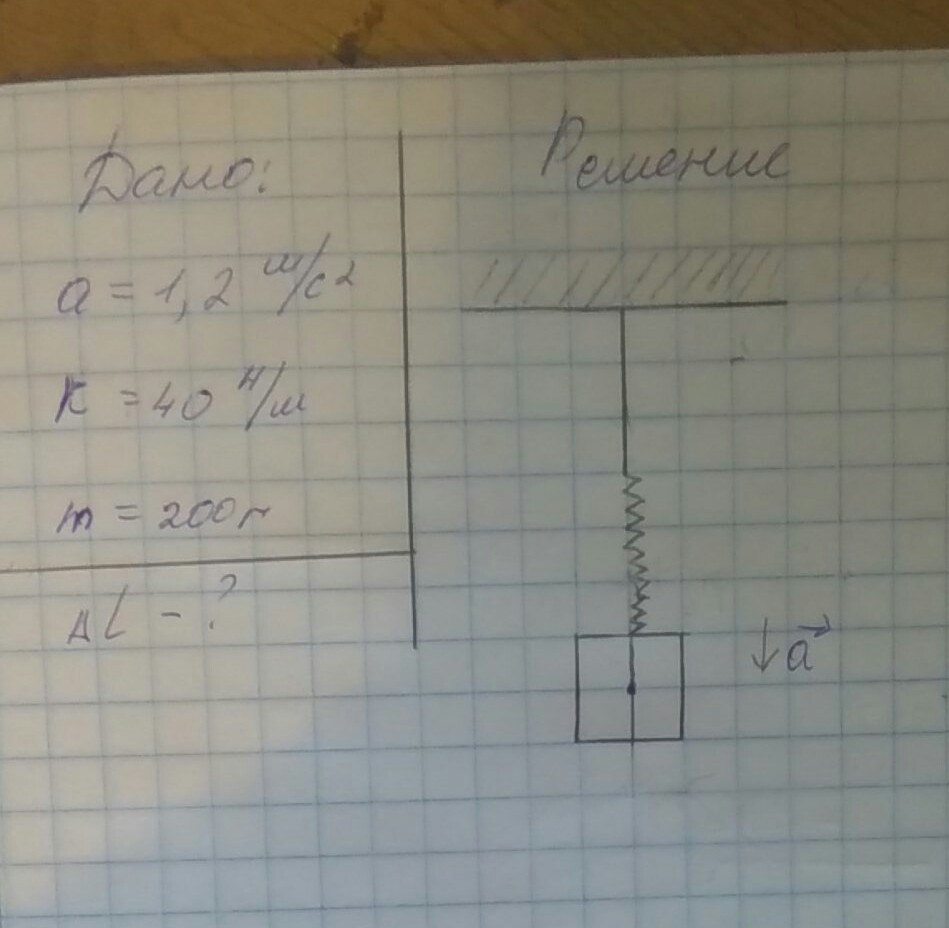 Дано:
a = 1,2 м/с2
K = 40 Н/м
m = 200 г
ΔL - ?
Решение
a